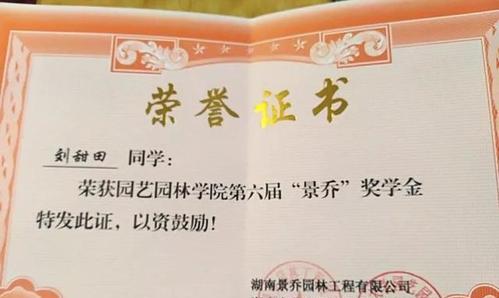 荣誉证书
刘甜田 同学：
荣获园艺园林学院第六届“景乔”奖学金
特发此证，以资鼓励！
湖南景乔园林工程有限公司